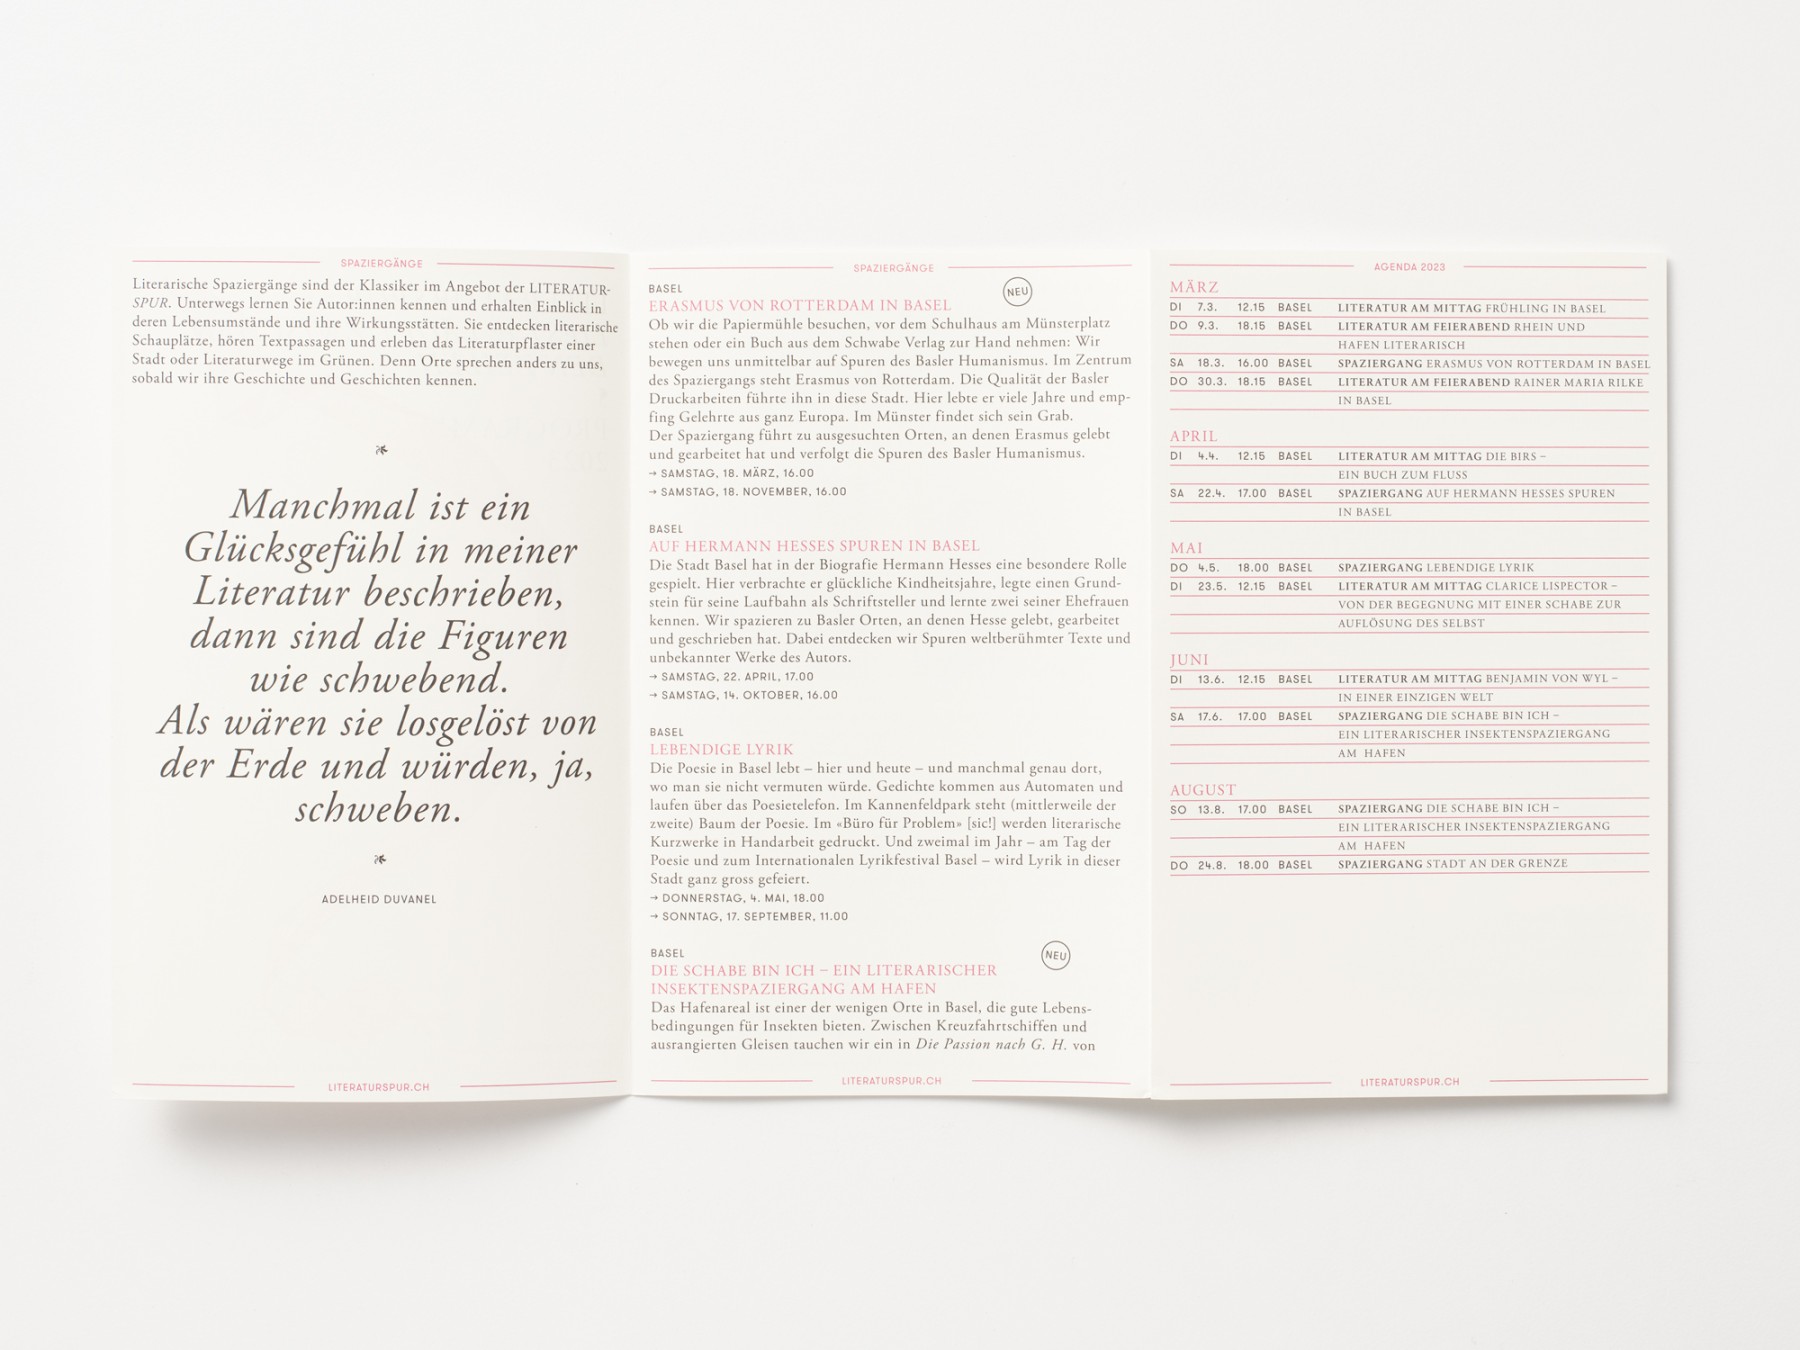 SPAZIERGÄNGE
Literarische Spaziergänge sind der Klassiker im Angebot der LITERATUR-
SPUR. Unterwegs lernen Sie Autor:innen kennen und erhalten Einblick in
deren Lebensumstände und ihre Wirkungsstätten. Sie entdecken literarische
Schauplätze, hören Textpassagen und erleben das Literaturpflaster einer
Stadt oder Literaturwege im Grünen. Denn Orte sprechen anders zu uns,
sobald wir ihre Geschichte und Geschichten kennen.
Manchmal ist ein
Glücksgefühl in meiner
Literatur beschrieben,
dann sind die Figuren
wie schwebend.
Als wären sie losgelöst von
der Erde und würden, ja,
schweben.
ADELHEID DUVANEL
LITERATURSPUR.CH
SPAZIERGÄNGE
BASEL
NEU
ERASMUS VON ROTTERDAM IN BASEL
Ob wir die Papiermühle besuchen, vor dem Schulhaus am Münsterplatz
stehen oder ein Buch aus dem Schwabe Verlag zur Hand nehmen: Wir
bewegen uns unmittelbar auf Spuren des Basler Humanismus. Im Zentrum
des Spaziergangs steht Erasmus von Rotterdam. Die Qualität der Basler
Druckarbeiten führte ihn in diese Stadt. Hier lebte er viele Jahre und emp-
fing Gelehrte aus ganz Europa. Im Münster findet sich sein Grab.
Der Spaziergang führt zu ausgesuchten Orten, an denen Erasmus gelebt
und gearbeitet hat und verfolgt die Spuren des Basler Humanismus.
→ SAMSTAG, 18. MÄRZ, 16.00
→ SAMSTAG, 18. NOVEMBER, 16.00
BASEL
AUF HERMANN HESSES SPUREN IN BASEL
Die Stadt Basel hat in der Biografie Hermann Hesses eine besondere Rolle
gespielt. Hier verbrachte er glückliche Kindheitsjahre, legte einen Grund-
stein für seine Laufbahn als Schriftsteller und lernte zwei seiner Ehefrauen
kennen. Wir spazieren zu Basler Orten, an denen Hesse gelebt, gearbeitet
und geschrieben hat. Dabei entdecken wir Spuren weltberühmter Texte und
unbekannter Werke des Autors.
→ SAMSTAG, 22. APRIL, 17.00
→ SAMSTAG, 14. OKTOBER, 16.00
BASEL
LEBENDIGE LYRIK
Die Poesie in Basel lebt – hier und heute – und manchmal genau dort,
wo man sie nicht vermuten würde. Gedichte kommen aus Automaten und
laufen über das Poesietelefon. Im Kannenfeldpark steht (mittlerweile der
zweite) Baum der Poesie. Im «Büro für Problem» [sic!] werden literarische
Kurzwerke in Handarbeit gedruckt. Und zweimal im Jahr – am Tag der
Poesie und zum Internationalen Lyrikfestival Basel – wird Lyrik in dieser
Stadt ganz gross gefeiert.
→ DONNERSTAG, 4. MAI, 18.00
→ SONNTAG, 17. SEPTEMBER, 11.00
BASEL
NEU
DIE SCHABE BIN ICH – EIN LITERARISCHER
INSEKTENSPAZIERGANG AM HAFEN
Das Hafenareal ist einer der wenigen Orte in Basel, die gute Lebens-
bedingungen für Insekten bieten. Zwischen Kreuzfahrtschiffen und
ausrangierten Gleisen tauchen wir ein in Die Passion nach G. H. von
LITERATURSPUR.CH
AGENDA 2023
MÄRZ
DI 7.3. 12.15 BASEL LITERATUR AM MITTAG FRÜHLING IN BASEL
DO 9.3. 18.15 BASEL LITERATUR AM FEIERABEND RHEIN UND
HAFEN LITERARISCH
SA 18.3. 16.00 BASEL SPAZIERGANG ERASMUS VON ROTTERDAM IN BASEL
DO 30.3. 18.15 BASEL LITERATUR AM FEIERABEND RAINER MARIA RILKE
IN BASEL
APRIL
DI 4.4. 12.15 BASEL LITERATUR AM MITTAG DIE BIRS –
EIN BUCH ZUM FLUSS
SA 22.4. 17.00 BASEL SPAZIERGANG AUF HERMANN HESSES SPUREN
IN BASEL
MAI
DO 4.5. 18.00 BASEL SPAZIERGANG LEBENDIGE LYRIK
DI 23.5. 12.15 BASEL LITERATUR AM MITTAG CLARICE LISPECTOR –
VON DER BEGEGNUNG MIT EINER SCHABE ZUR
AUFLÖSUNG DES SELBST
JUNI
DI 13.6. 12.15 BASEL LITERATUR AM MITTAG BENJAMIN VON WYL –
IN EINER EINZIGEN WELT
SA 17.6. 17.00 BASEL SPAZIERGANG DIE SCHABE BIN ICH –
EIN LITERARISCHER INSEKTENSPAZIERGANG
AM HAFEN
AUGUST
SO 13.8. 17.00 BASEL SPAZIERGANG DIE SCHABE BIN ICH –
EIN LITERARISCHER INSEKTENSPAZIERGANG
AM HAFEN
DO 24.8. 18.00 BASEL SPAZIERGANG STADT AN DER GRENZE
LITERATURSPUR.CH